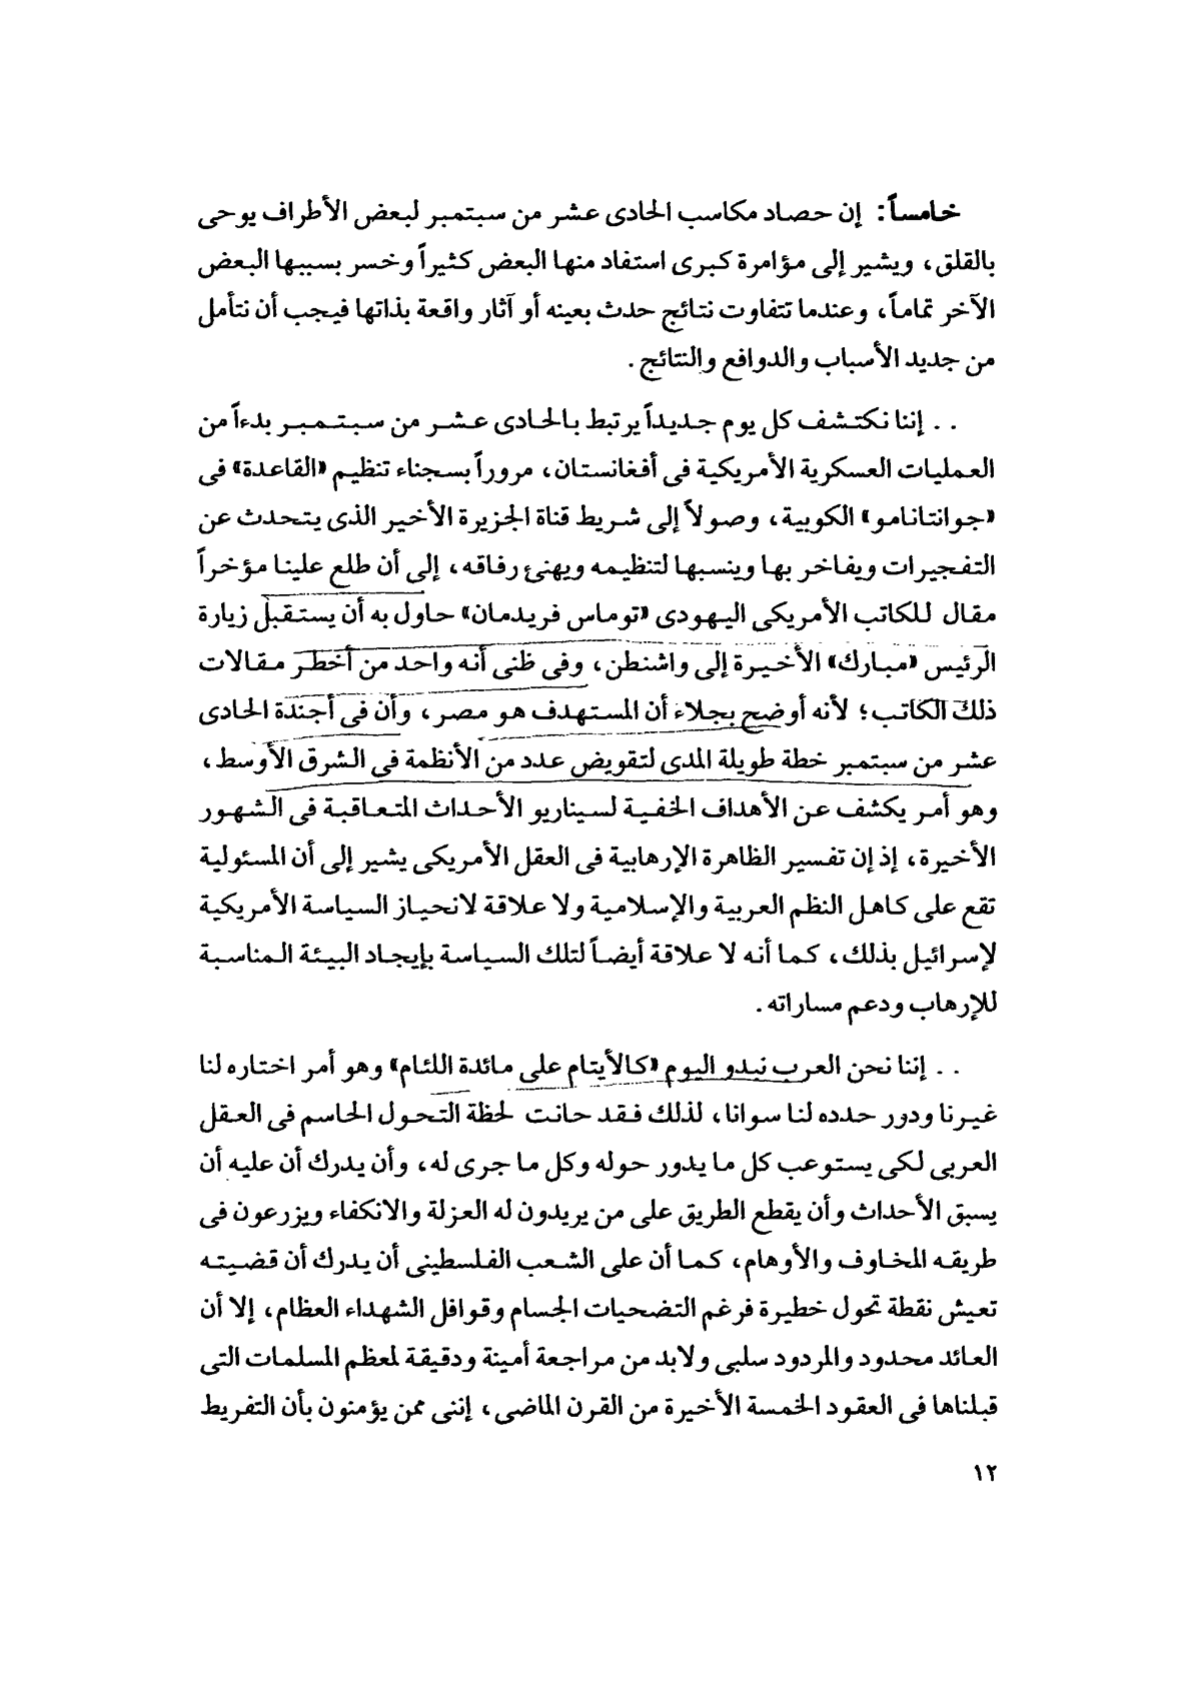 خامساً: إن حصاد مكاسب الحادى عشر من سبتمبر لبعض الأطراف يوحى
بالقلق، ويشير إلى مؤامرة كبرى استفاد منها البعض كثيراً وخسر بسببها البعض
الآخر تماماً، وعندما تتفاوت نتائج حدث بعينه أو آثار واقعة بذاتها فيجب أن نتأمل
من جديد الأسباب والدوافع والنتائج.
. . إننا نكتشف كل يوم جديداً يرتبط بالحادى عشر من سبتمبر بدءاً من
العمليات العسكرية الأمريكية فى أفغانستان، مروراً بسجناء تنظيم «القاعدة» فى
«جوانتانامو» الكوبية، وصولاً إلى شريط قناة الجزيرة الأخير الذى يتحدث عن
التفجيرات ويفاخر بها وينسبها لتنظيمه ويهنئ رفاقه، إلى أن طلع علينا مؤخراً
مقال للكاتب الأمريكى اليهودى «توماس فريدمان» حاول به أن يستقبل زيارة
الرئيس «مبارك» الأخيرة إلى واشنطن، وفى ظنى أنه واحد من أخطر مقالات
ذلك الكاتب؛ لأنه أوضح بجلاء أن المستهدف هو مصر، وأن فى أجندة الحادى
عشر من سبتمبر خطة طويلة المدى لتقويض عدد من الأنظمة فى الشرق الأوسط،
وهو أمر يكشف عن الأهداف الخفية لسيناريو الأحداث المتعاقبة فى الشهور
الأخيرة، إذ إن تفسير الظاهرة الإرهابية فى العقل الأمريكى يشير إلى أن المسئولية
تقع على كاهل النظم العربية والإسلامية ولا علاقة لانحياز السياسة الأمريكية
لإسرائيل بذلك، كما أنه لا علاقة أيضاً لتلك السياسة بإيجاد البيئة المناسبة
للإرهاب ودعم مساراته.
. . إننا نحن العرب نبدو اليوم «كالأيتام على مائدة اللئام» وهو أمر اختاره لنا
غيرنا ودور حدده لنا سوانا، لذلك فقد حانت لحظة التحول الحاسم فى العقل
العربى لكى يستوعب كل ما يدور حوله وكل ما جرى له، وأن يدرك أن عليه أن
يسبق الأحداث وأن يقطع الطريق على من يريدون له العزلة والانكفاء ويزرعون فى
طريقه المخاوف والأوهام، كما أن على الشعب الفلسطينى أن يدرك أن قضيته
تعيش نقطة تحول خطيرة فرغم التضحيات الجسام وقوافل الشهداء العظام، إلا أن
العائد محدود والمردود سلبى ولابد من مراجعة أمينة ودقيقة لمعظم المسلمات التى
قبلناها فى العقود الخمسة الأخيرة من القرن الماضى، إننى ممن يؤمنون بأن التفريط
١٢